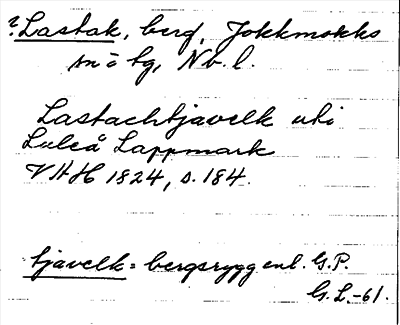 ? Lastak, berg, Jokkmokks
sn o tg, Nb. l.
Lastachtjavelk uti
Luleå Lappmark
VAH 1824, s. 184.
tjavelk = bergsrygg enl. G.P.
G. L. -61.